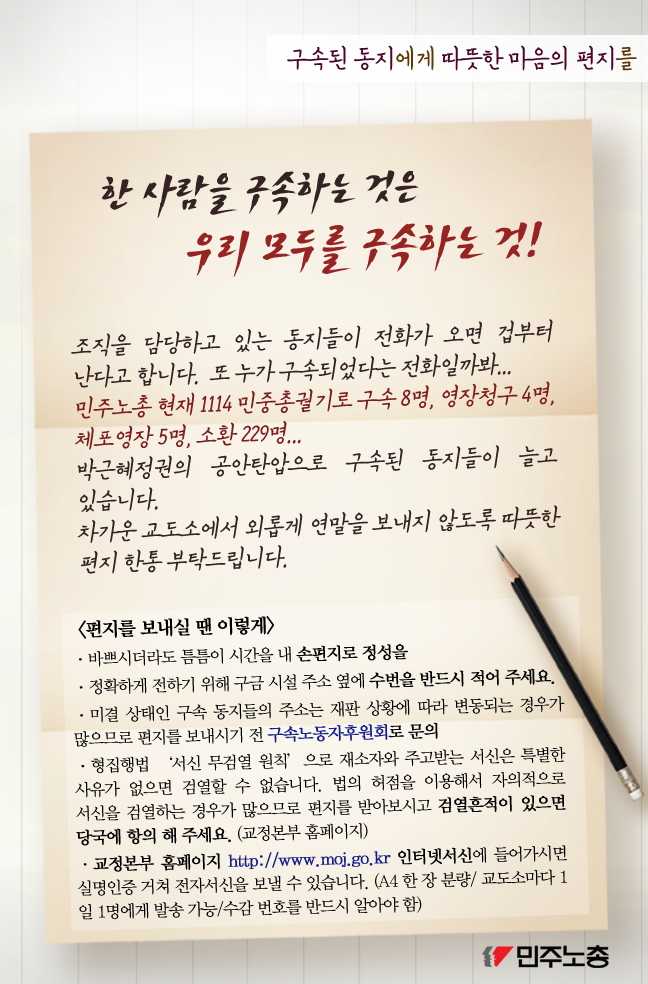 구속된 동지에게 따뜻한 마음의 편지를
한 사람을 구속하는 것은
우리 모두를 구속하는 것!
조직을 담당하고 있는 동지들이 전화가 오면 겁부터
난다고 합니다. 또 누가 구속되었다는 전화일까봐...
민주노총 현재 1114 민중총궐기로 구속 8명, 영장청구 4명,
체포영장 5명, 소환 229명...
박근혜정권의 공안탄압으로 구속된 동지들이 늘고
있습니다.
차가운 교도소에서 외롭게 연말을 보내지 않도록 따뜻한
편지 한통 부탁드립니다.
<편지를 보내실 땐 이렇게>
· 바쁘시더라도 틈틈이 시간을 내 손편지로 정성을
· 정확하게 전하기 위해 구금 시설 주소 옆에 수번을 반드시 적어 주세요.
· 미결 상태인 구속 동지들의 주소는 재판 상황에 따라 변동되는 경우가
많으므로 편지를 보내시기 전 구속노동자후원회로 문의
· 형집행법 ‘서신 무검열 원칙’으로 재소자와 주고받는 서신은 특별한
사유가 없으면 검열할 수 없습니다. 법의 허점을 이용해서 자의적으로
서신을 검열하는 경우가 많으므로 편지를 받아보시고 검열흔적이 있으면
당국에 항의 해 주세요. (교정본부 홈페이지)
· 교정본부 홈페이지 http://www.moj.go.kr 인터넷서신에 들어가시면
실명인증 거쳐 전자서신을 보낼 수 있습니다. (A4 한 장 분량/ 교도소마다 1
일 1명에게 발송 가능/수감 번호를 반드시 알아야 함)
민주노총